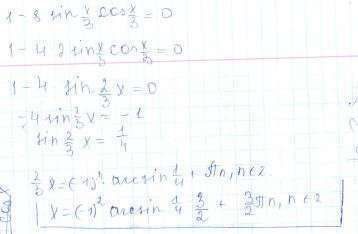 1 - 8 sin x/3 cos x/3 = 0
1 - 4 2 sin x/3 cos x/3 = 0
1 - 4 sin 2/3 x = 0
-4 sin 2/3 x = -1
sin 2/3 x = 1/4
2/3 x = (-1)ⁿ arcsin 1/4 + πn, n∈z
x = (-1)² arcsin 1/4 3/2 + 3/2 πn, n∈z
cosx